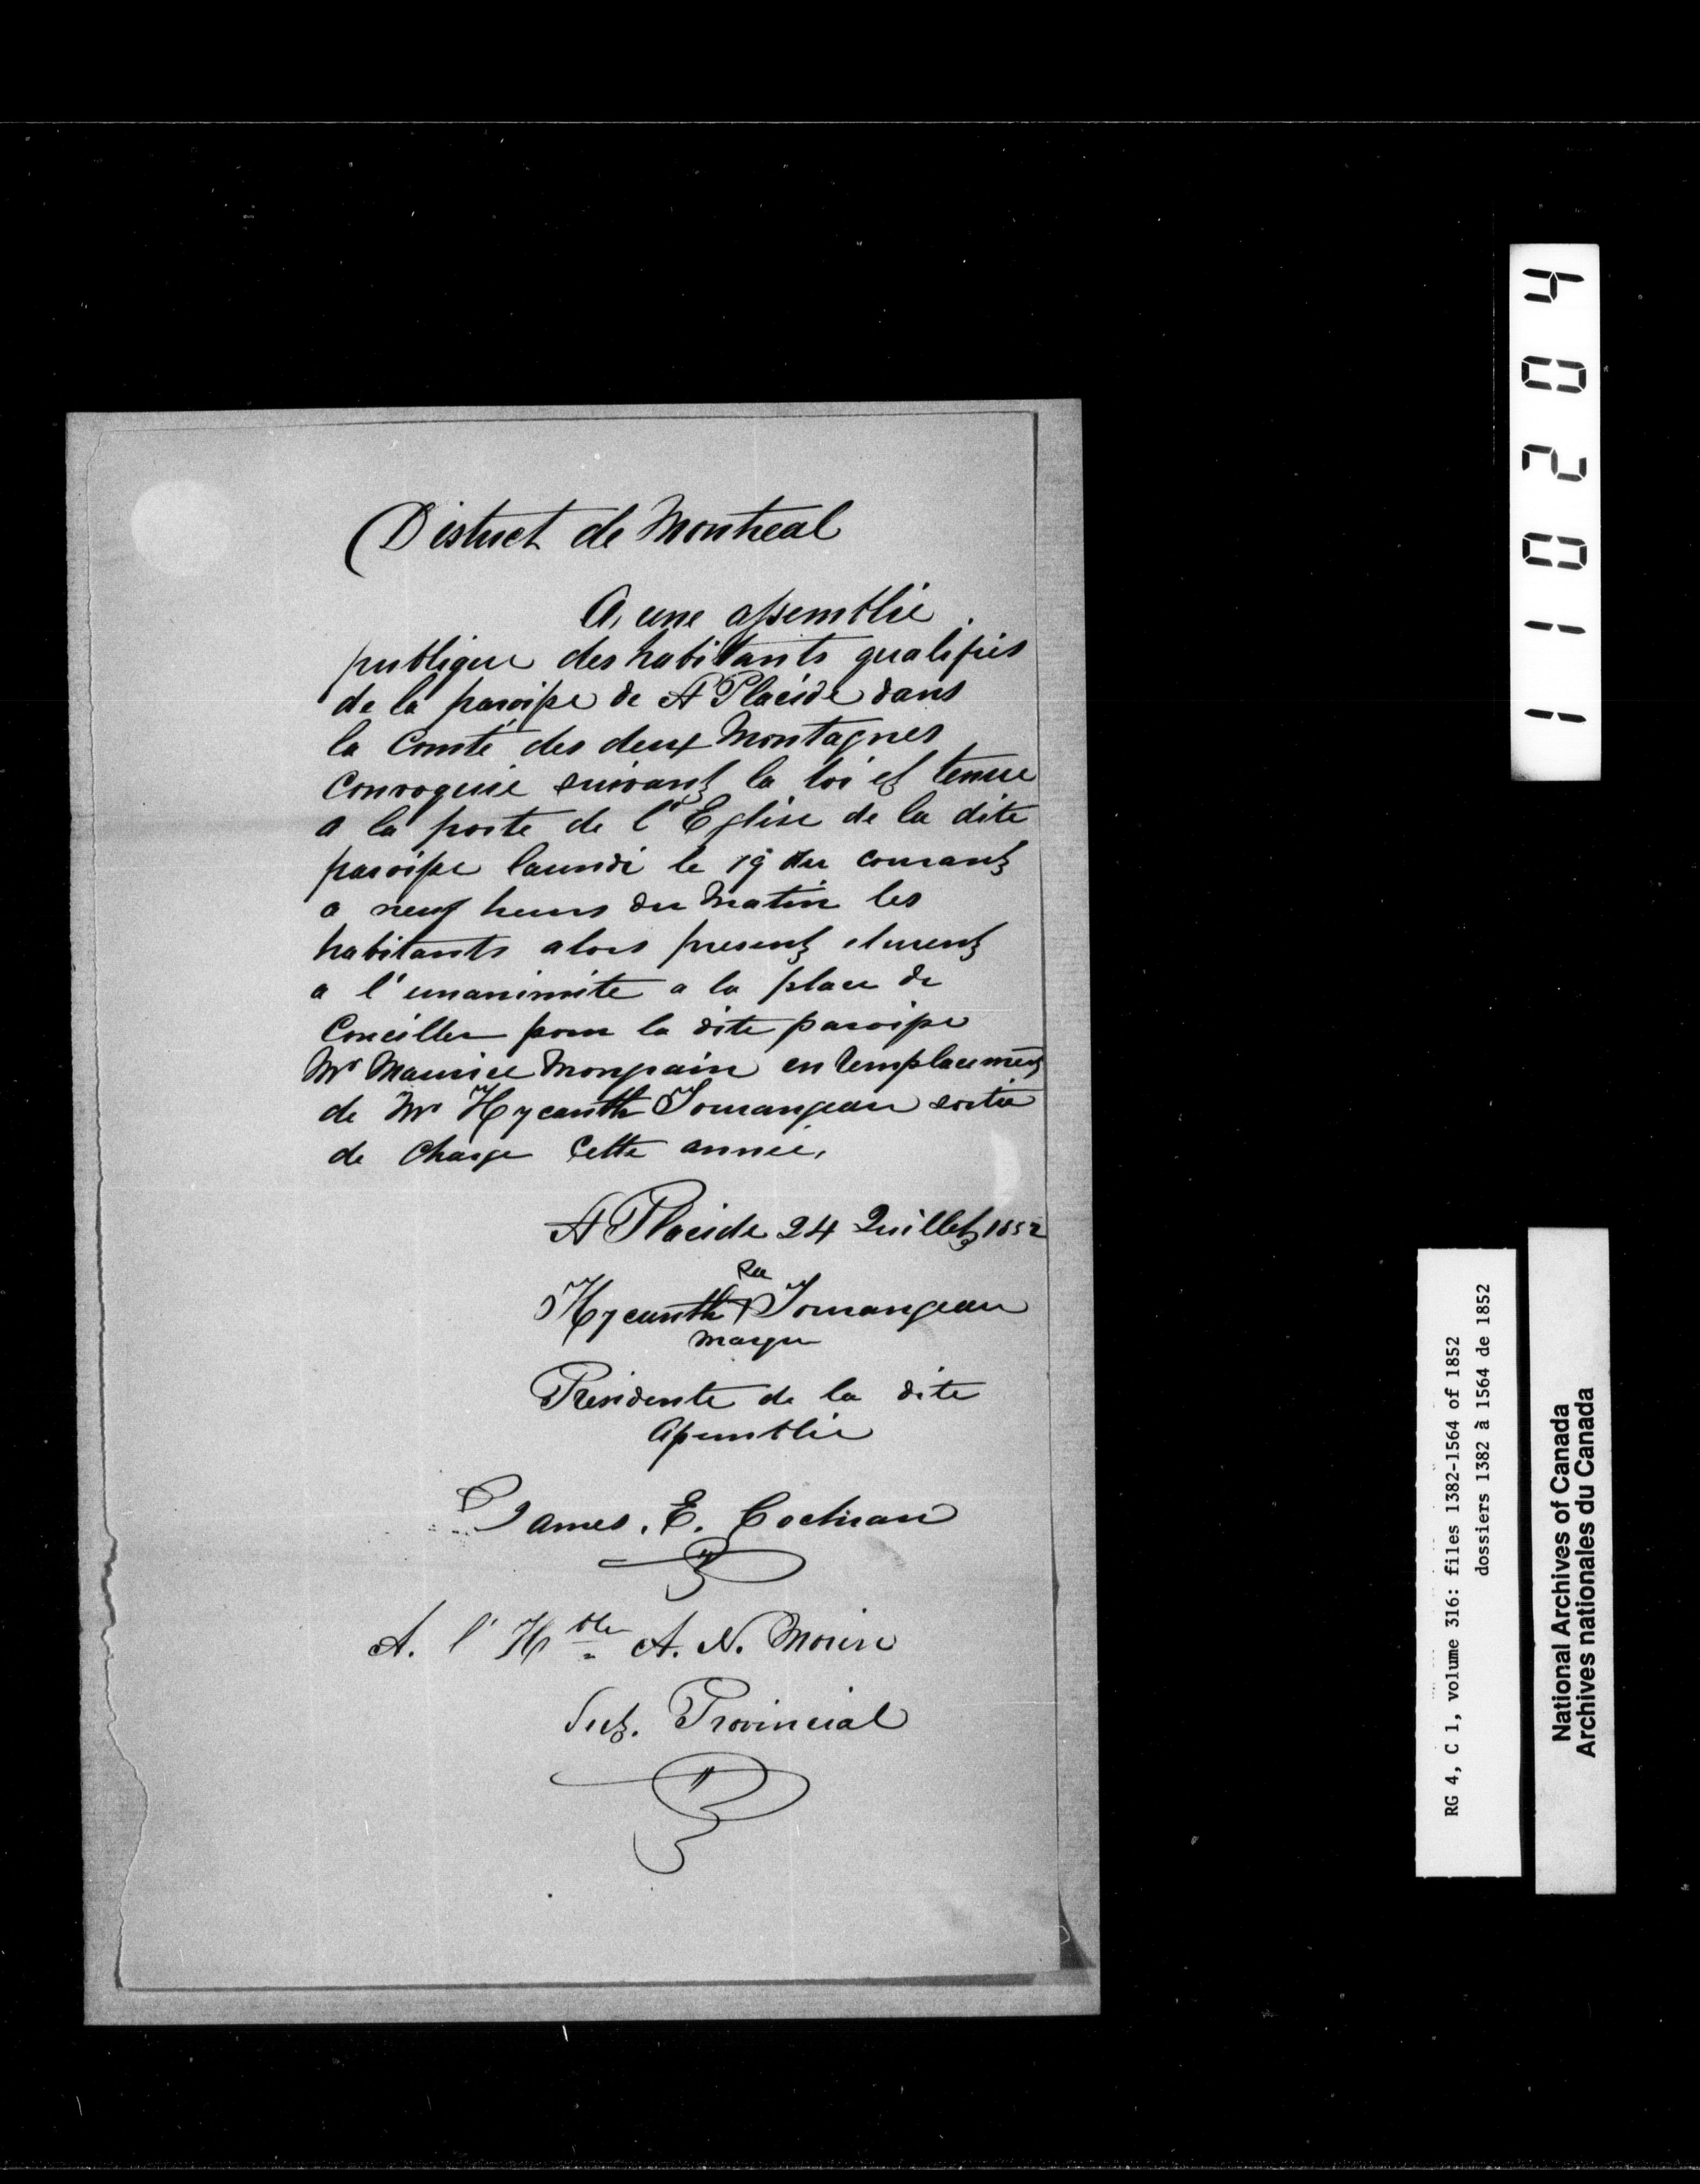 District de Montreal
A, une assemblée
publique des habitants qualifiés
de la paroisse de St Placide dans
la Comté des deux Montagnes
Convoquée suivant la loi et tenue
a la porte de l'Eglise de la dite
paroisse laundi le 19 du courant
a neuf heurs du Matin les
habitants alors present elurent
a l'unanimite a la place de
Conciller pour la dite paroisse
Mr Maurice Mongrain en remplacement
de Mr Hycanth Tourangeau sortie
de Charge Cette année,
St Placide 24 Juillet 1852
Sa
Hycanth + Tourangeau
marque
Presidente de la dite
Assemblée
James. E. Cochran
A. l'Hble A. N. Morin
Sect. Provincial
110204
RG 4, C 1, volume 316: files 1382-1564 of 1852
dossiers 1382 à 1564 de 1852
National Archives of Canada
Archives nationales du Canada